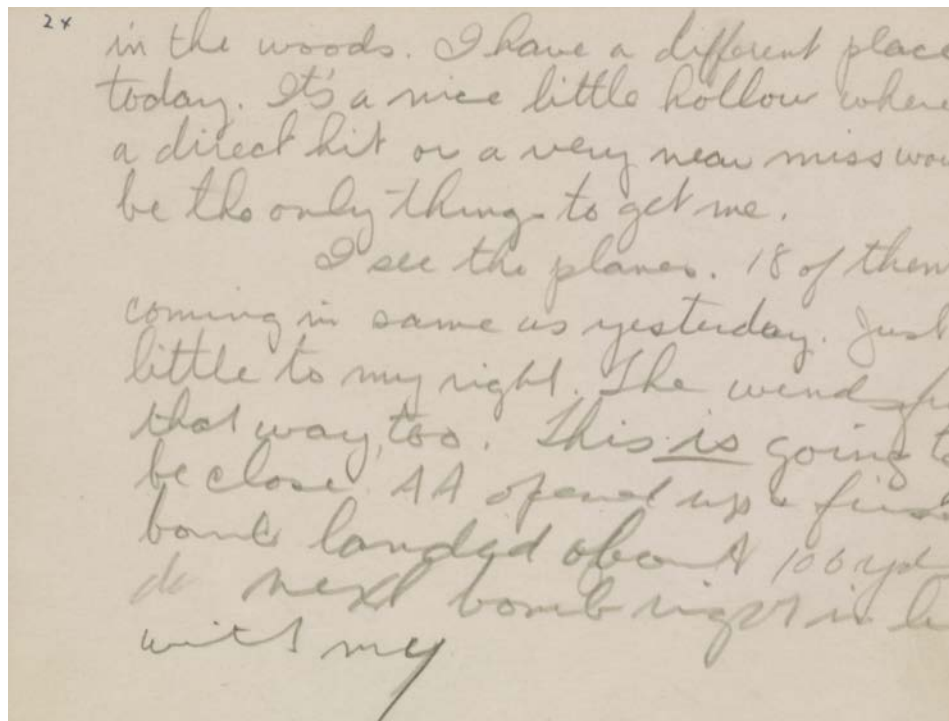 2x
in the woods. I have a different place
today. It's a nice little hollow where
a direct hit or a very near miss wou
be the only things to get me.
I see the planes. 18 of them
coming in same as yesterday. Just
little to my right. The wind's
that way, too. This is going to
be close. AA opened up &
bomb landed about 100 yds
next bomb right in li
with my